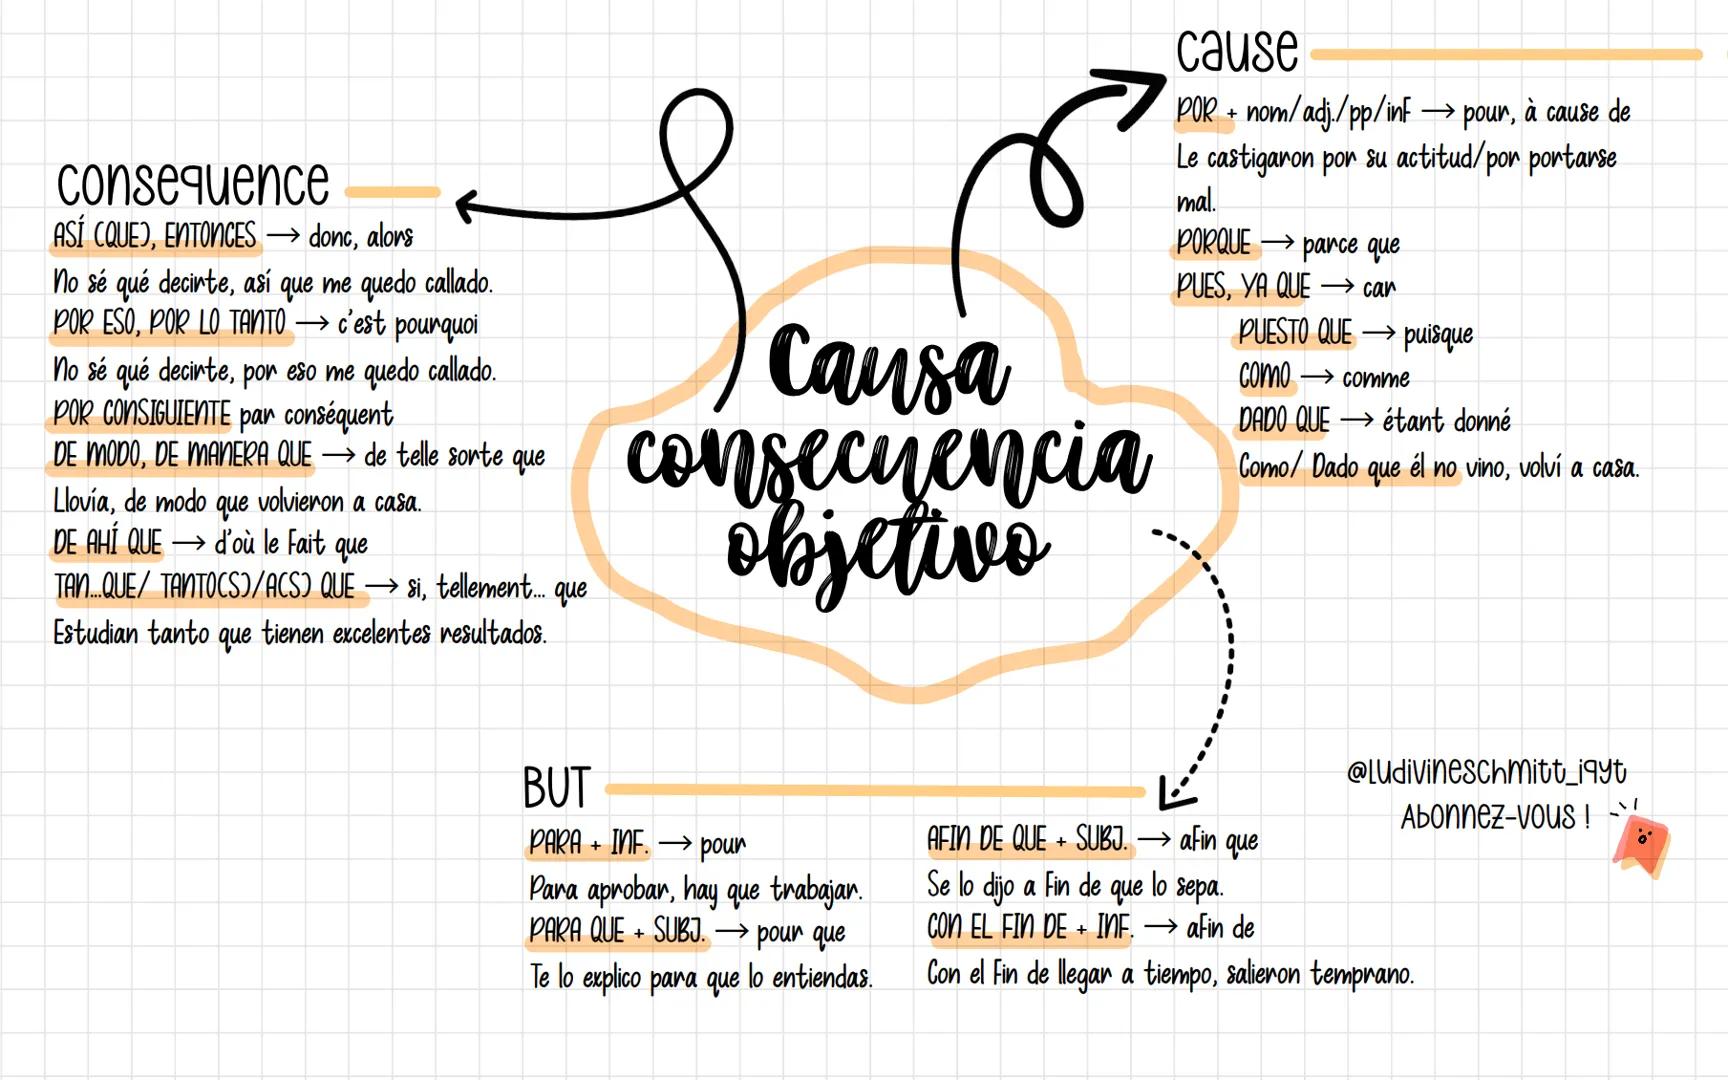 Causa
consecuencia
objetivo
consequence
ASÍ (QUE), ENTONCES → donc, alors
No sé qué decirte, así que me quedo callado.
POR ESO, POR LO TANTO → c'est pourquoi
No sé qué decirte, por eso me quedo callado.
POR CONSIGUIENTE par conséquent
DE MODO, DE MANERA QUE → de telle sorte que
Llovía, de modo que volvieron a casa.
DE AHÍ QUE → d'où le fait que
TAN...QUE/ TANTO(S)/A(S) QUE → si, tellement... que
Estudian tanto que tienen excelentes resultados.
cause
POR + nom/adj./pp/inf → pour, à cause de
Le castigaron por su actitud/por portarse
mal.
PORQUE → parce que
PUES, YA QUE → car
PUESTO QUE → puisque
COMO → comme
DADO QUE → étant donné
Como/ Dado que él no vino, volví a casa.
BUT
PARA + INF. → pour
Para aprobar, hay que trabajar.
PARA QUE + SUBJ. → pour que
Te lo explico para que lo entiendas.
AFIN DE QUE + SUBJ. → afin que
Se lo dijo a fin de que lo sepa.
CON EL FIN DE + INF. → afin de
Con el fin de llegar a tiempo, salieron temprano.
@ludivineschmitt_iqyt
Abonnez-vous !